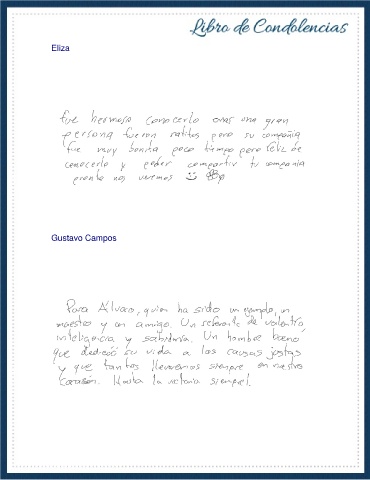 Libro de Condolencias
Eliza
fue hermoso conocerlo eras una gran
persona fueron ratitos pero su compañia
fue muy bonita poco tiempo pero feliz de
conocerlo y poder compartir tu compania
pronto nos veremos
Gustavo Campos
Para Álvaro, quien ha sido un ejemplo, un
maestro y un amigo. Un referente de valentía,
inteligencia y sabiduría. Un hombre bueno
que dedicó su vida a las causas justas
y que tantos llevaremos siempre en nuestro
corazón. Hasta la victoria siempre!